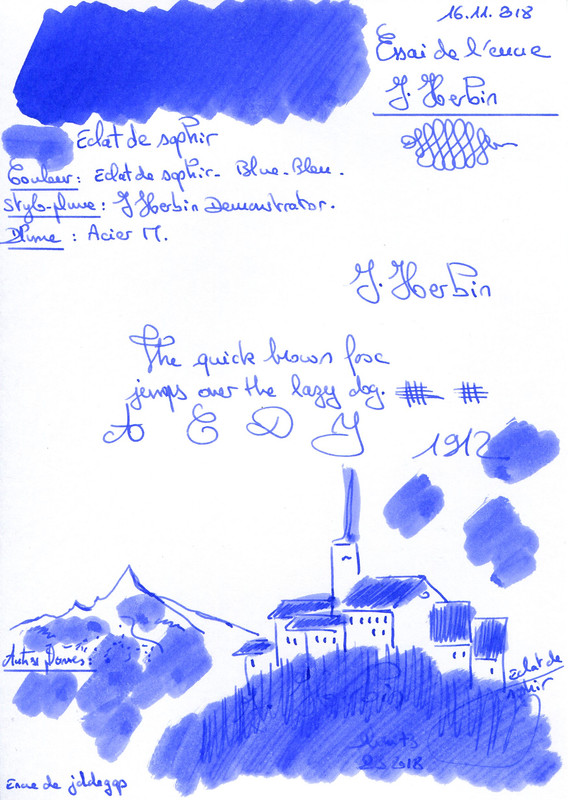 16.11.318
Essai de l'encre
J. Herbin
Eclat de saphir
Couleur : Eclat de saphir - Blue-Bleu.
Stylo-plume : J Herbin Demonstrator.
Plume : Acier M.
J. Herbin
The quick brown fox
jemps over the lazy dog.
A E D J
1912
Autres Données :
Eclat de
saphir
2018
Encre de